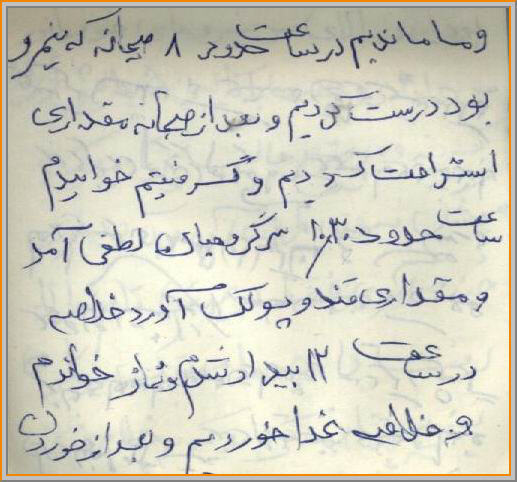 و ما ماندیم در ساعت حدود ۸ صبحانه که نیمرو
بود درست کردیم و بعد از صبحانه مقداری
استراحت کردیم و گرفتیم خوابیدم
ساعت حدود ۱۰:۳۰ سرگروهبان لطفی آمد
و مقداری قند و پولک آورد خلاصه
در ساعت ۱۲ بیدار شدم و نماز خواندم
و خلاصه غذا خوردیم و بعد از خوردن